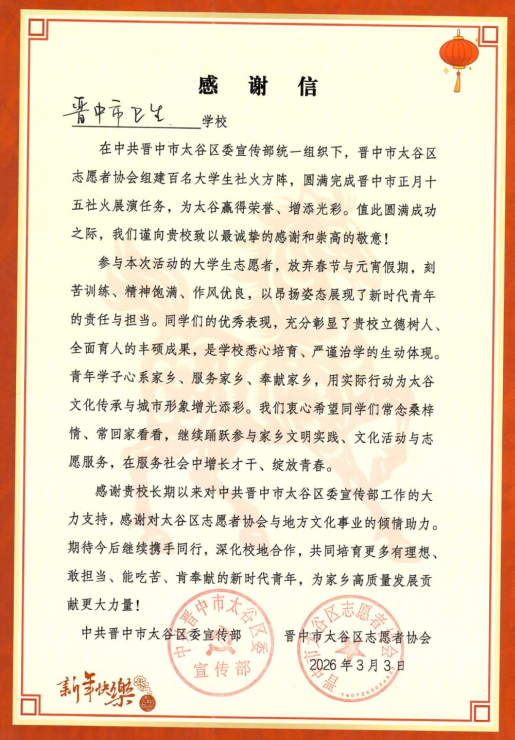 感谢信
晋中市卫生 学校
在中共晋中市太谷区委宣传部统一组织下，晋中市太谷区
志愿者协会组建百名大学生社火方阵，圆满完成晋中市正月十
五社火展演任务，为太谷赢得荣誉、增添光彩。值此圆满成功
之际，我们谨向贵校致以最诚挚的感谢和崇高的敬意！
参与本次活动的大学生志愿者，放弃春节与元宵假期，刻
苦训练、精神饱满、作风优良，以昂扬姿态展现了新时代青年
的责任与担当。同学们的优秀表现，充分彰显了贵校立德树人、
全面育人的丰硕成果，是学校悉心培育、严谨治学的生动体现。
青年学子心系家乡、服务家乡、奉献家乡，用实际行动为太谷
文化传承与城市形象增光添彩。我们衷心希望同学们常念桑梓
情、常回家看看，继续踊跃参与家乡文明实践、文化活动与志
愿服务，在服务社会中增长才干、绽放青春。
感谢贵校长期以来对中共晋中市太谷区委宣传部工作的大
力支持，感谢对太谷区志愿者协会与地方文化事业的倾情助力。
期待今后继续携手同行，深化校地合作，共同培育更多有理想、
敢担当、能吃苦、肯奉献的新时代青年，为家乡高质量发展贡
献更大力量！
中共晋中市太谷区委宣传部 晋中市太谷区志愿者协会
2026年3月3日
中共晋中市太谷区委
宣传部
晋中市太谷区志愿者协会
新年快樂